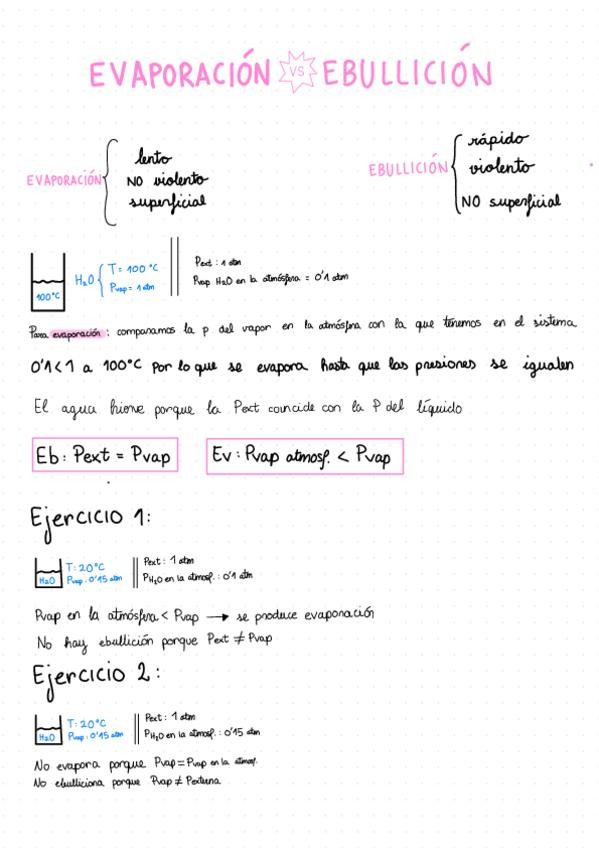 EVAPORACIÓN VS EBULLICIÓN
EVAPORACIÓN { lento
NO violento
superficial
EBULLICIÓN { rápido
violento
NO superficial
100°C
H₂O { T = 100 °C
Pvap = 1 atm
Pext : 1 atm
Pvap H₂O en la atmósfera = 0'1 atm
Para evaporación : comparamos la p del vapor en la atmósfera con la que tenemos en el sistema
0'1 < 1 a 100°C por lo que se evapora hasta que las presiones se igualen
El agua hierve porque la Pext coincide con la P del líquido
Eb : Pext = Pvap
Ev : Pvap atmosf. < Pvap
Ejercicio 1:
H₂O
T: 20°C
Pvap : 0'15 atm
Pext : 1 atm
PH₂O en la atmosf. : 0'1 atm
Pvap en la atmósfera < Pvap → se produce evaporación
No hay ebullición porque Pext ≠ Pvap
Ejercicio 2:
H₂O
T: 20°C
Pvap : 0'15 atm
Pext : 1 atm
PH₂O en la atmosf. : 0'15 atm
No evapora porque Pvap = Pvap en la atmosf.
No ebulliciona porque Pvap ≠ Pexterna